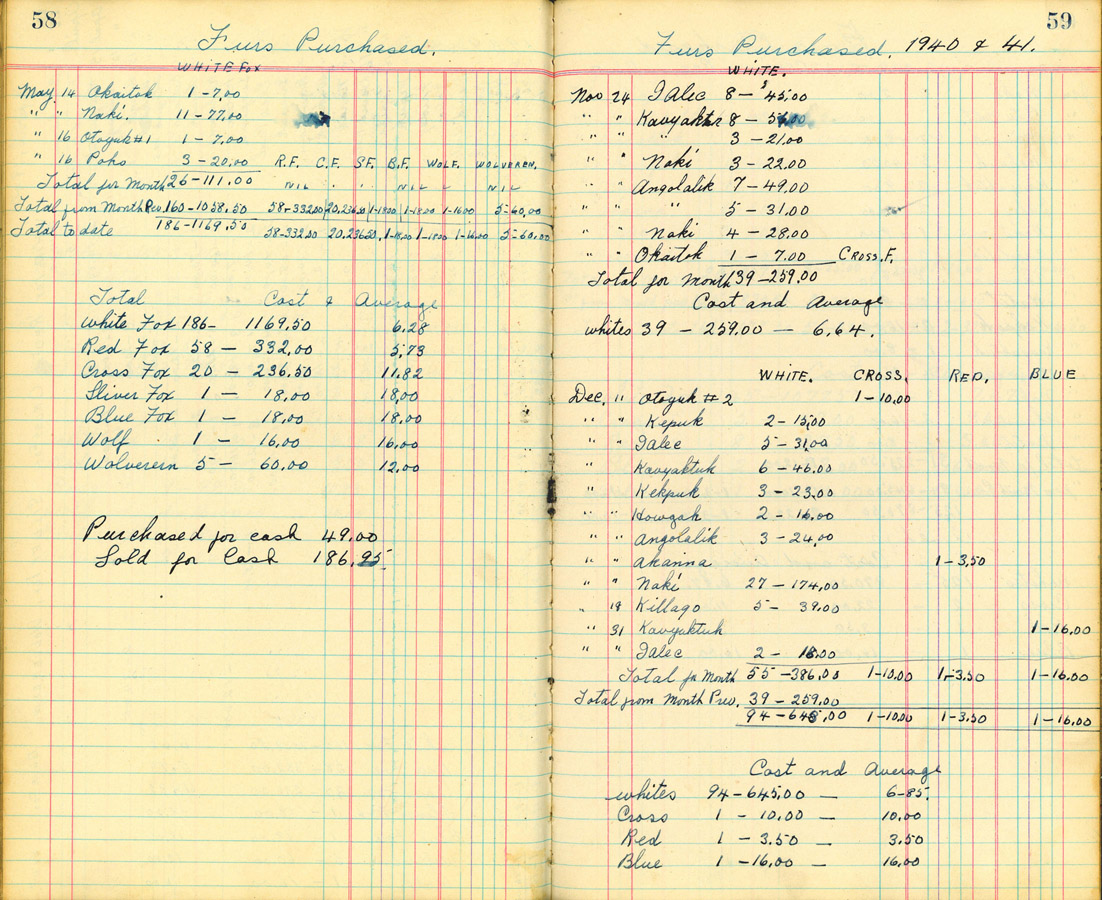 58
Furs Purchased.
WHITE FOX
May 14 Okaitok 1-7,00
" " Naki. 11-77,00
" 16 Otoyuk#1 1-7,00
" 16 Poko 3-20,00 R.F. C.F. SF. B.F. WOLF. WOLVEREN.
Total for Month 26-111.00 NIL " " NIL " NIL
Total from Month Prev. 160-1058,50 58-332.00 20,236.50 1-18.00 1-18.00 1-16.00 5-60,00
Total to date 186-1169,50 58-332.00 20,236.50, 1-18,00 1-18,00 1-16,00 5-60,00
Total Cost & Average
White Fox 186- 1169,50 6.28
Red Fox 58 - 332,00 5,73
Cross Fox 20 - 236,50 11.82
Sliver Fox 1 - 18,00 18,00
Blue Fox 1 - 18.00 18,00
Wolf 1 - 16.00 16,00
Wolverern 5 - 60,00 12,00
Purchased for cash 49.00
Sold for Cash 186,95
59
Furs Purchased. 1940 & 41.
WHITE.
Nov 24 Ialec 8-45,00
" " Kavyaktuk 8-
3-21.00
" " Naki 3-22.00
" " Angolalik 7-49,00
" " " 5-31,00
" " Naki 4-28,00
" " Okaitok 1-7.00 CROSS.F.
Total for Month 39-259,00
Cost and Average
whites 39 - 259.00 - 6,64.
WHITE. CROSS. RED. BLUE
Dec. " Otoyuk #2 1-10,00
" " Kepuk 2-15,00
" " Ialec 5-31,00
" " Kavyaktuk 6-46,00
" " Kekpuk 3-23,00
" " Howgak 2-16,00
" " Angolalik 3-24,00
" " Akanna 1-3,50
" " Naki 27-174,00
" 19 Killago 5-39,00
" 31 Kavyaktuk 1-16,00
" " Ialec 2-18.00
Total for Month 55-386,00 1-10.00 1-3.50 1-16.00
Total from Month Prev. 39-259,00
94-645,00 1-10.00 1-3.50 1-16.00
Cost and Average
whites 94-645,00 - 6-85.
Cross 1 - 10,00 - 10,00
Red 1 - 3.50 - 3,50
Blue 1 - 16,00 - 16,00